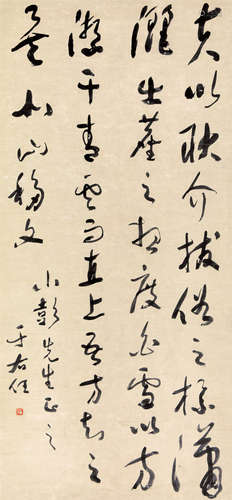 夫以耿介拔俗之標瀟
灑出塵之想度白雪以方
潔干青雲而直上吾方知之
矣北山移文
小彭先生正之
于右任